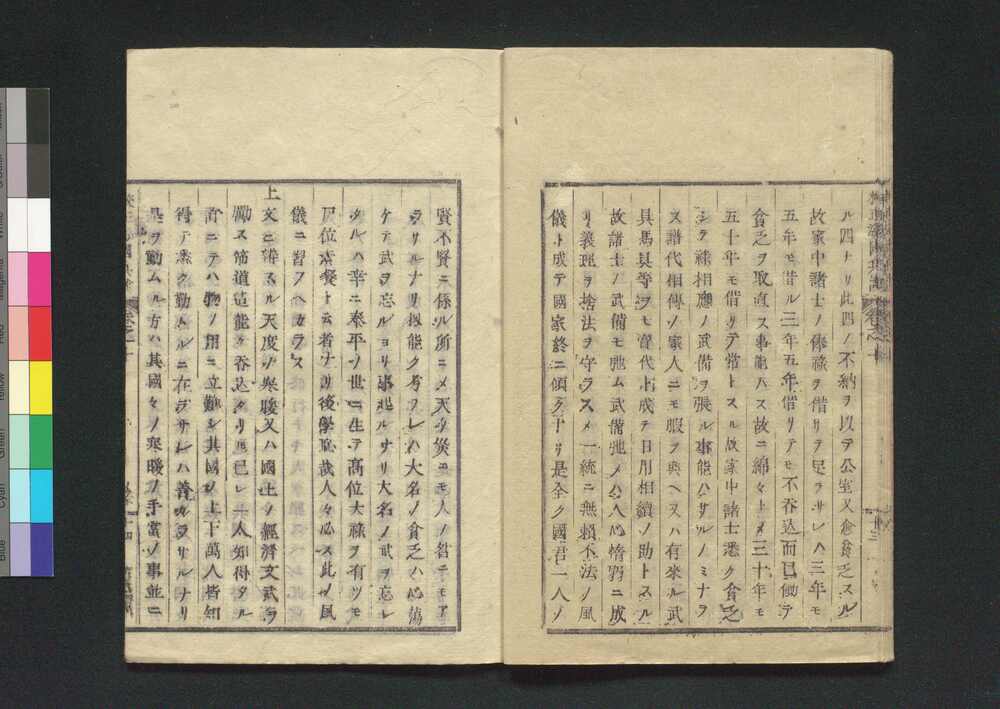 ル四ナリ此四ノ不納ヲ以テ公室又愈貧乏スル
故家中諸士ノ俸祿ヲ借リテ足ラサレハ三年モ
五年モ借ル三年五年借リテモ不呑込而已働テ
貧乏ヲ取直ス事能ハス故ニ綿々トメ三十年モ
五十年モ借リテ常トスル故家中諸士悉ク貧乏
シテ祿相應ノ武備ヲ張ル事能ハサルノミナラ
ス譜代相傳ノ家人ニモ暇ヲ與ヘ又ハ有來ル武
具馬具等ヲモ賣代ト成テ日用相續ノ助トスル
故諸士ノ武備モ弛ム武備弛メハ人心惰弱ニ成
リ義理ヲ捨法ヲ守ラスメ一統ニ無頼不法ノ風
儀ト成テ國家終ニ傾クナリ是全ク國君一人ノ
賢不賢ニ係ル所ニメ天ノ災ニモ人ノ咎ニモア
ラサルナリ扨能ク考フレハ大名ノ貧乏ハ心蕩
ケテ武ヲ忘ルヨリ事起ルナリ大名ノ武ヲ忘レ
タルハ幸ニ泰平ノ世ニ生テ高位大祿ヲ有ツモ
尸位素餐ト云者ナリ後學恥哉人々必ス此ノ風
儀ニ習フヘカラス
上文ニ諭スル天度ノ寒暖又ハ國土ノ經濟文武ヲ
勵ス筋道這能々呑込タリ𪜈已レ一人知得タル
許ニテハ物ノ用ニ立難シ其國ノ上下萬人皆知
得テ悉ク勤ムルニ在ラサレハ善カラサルナリ
是ヲ勤ムル方ハ其國々ノ寒暖ノ手當ノ事並ニ